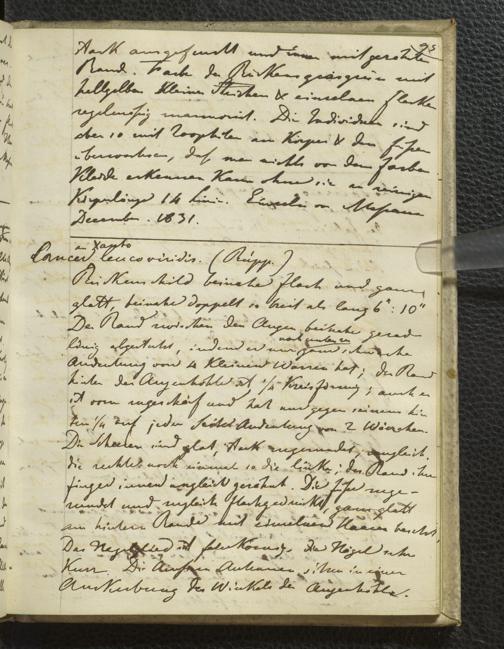 25
stark ausgehöhlt und innen mit gezähntem
Rand. Farbe des Rückens grasgrün mit
hellgelben kleinen Strichen & einzelnen Flecken
regelmässig marmorirt. Die Individuen sind
aber so mit Zoophiten am Körper & den Füssen
überwachsen, daß man nichts von dem Farben
Kleide erkennen kann ohne sie zu reinigen
Körperlänge 14 Lin. Einzeln in Messina
December. 1831.
an Xantho
Cancer leucoviridis. (Rüpp.)
Rückenschild beinahe flach und ganz
glatt beinahe doppelt so breit als lang 6" : 10"
Der Rand zwischen den Augen beinahe gerad-
linig abgestutzt, indem er nur ganz schwache
Andeutung von 4 kleinen Warzen hat; der Rand
hinter der Augenhöhle ist 1/4 Kreisförmig; auch er
ist vorn zugeschärft und hat nur gegen seinem hin-
tern 1/4 auf jeder Seite Andeutung von 2 Wärzchen.
Die Scheeren sind glat, stark zugerundet, ungleich,
die rechte noch einmal so die linke; der Rand ihrer
Finger innen ungleich gezähnt. Die Füsse zuge-
rundet und zugleich flachgedrückt, ganz glatt
am hintern Rande mit einzelnen Haaren besetzt.
Das Nagelglied ist der Nägel sehr
kurz. Die äussern Antennen sitzen in einer
Auskerbung des Winkels der Augenhöhle.